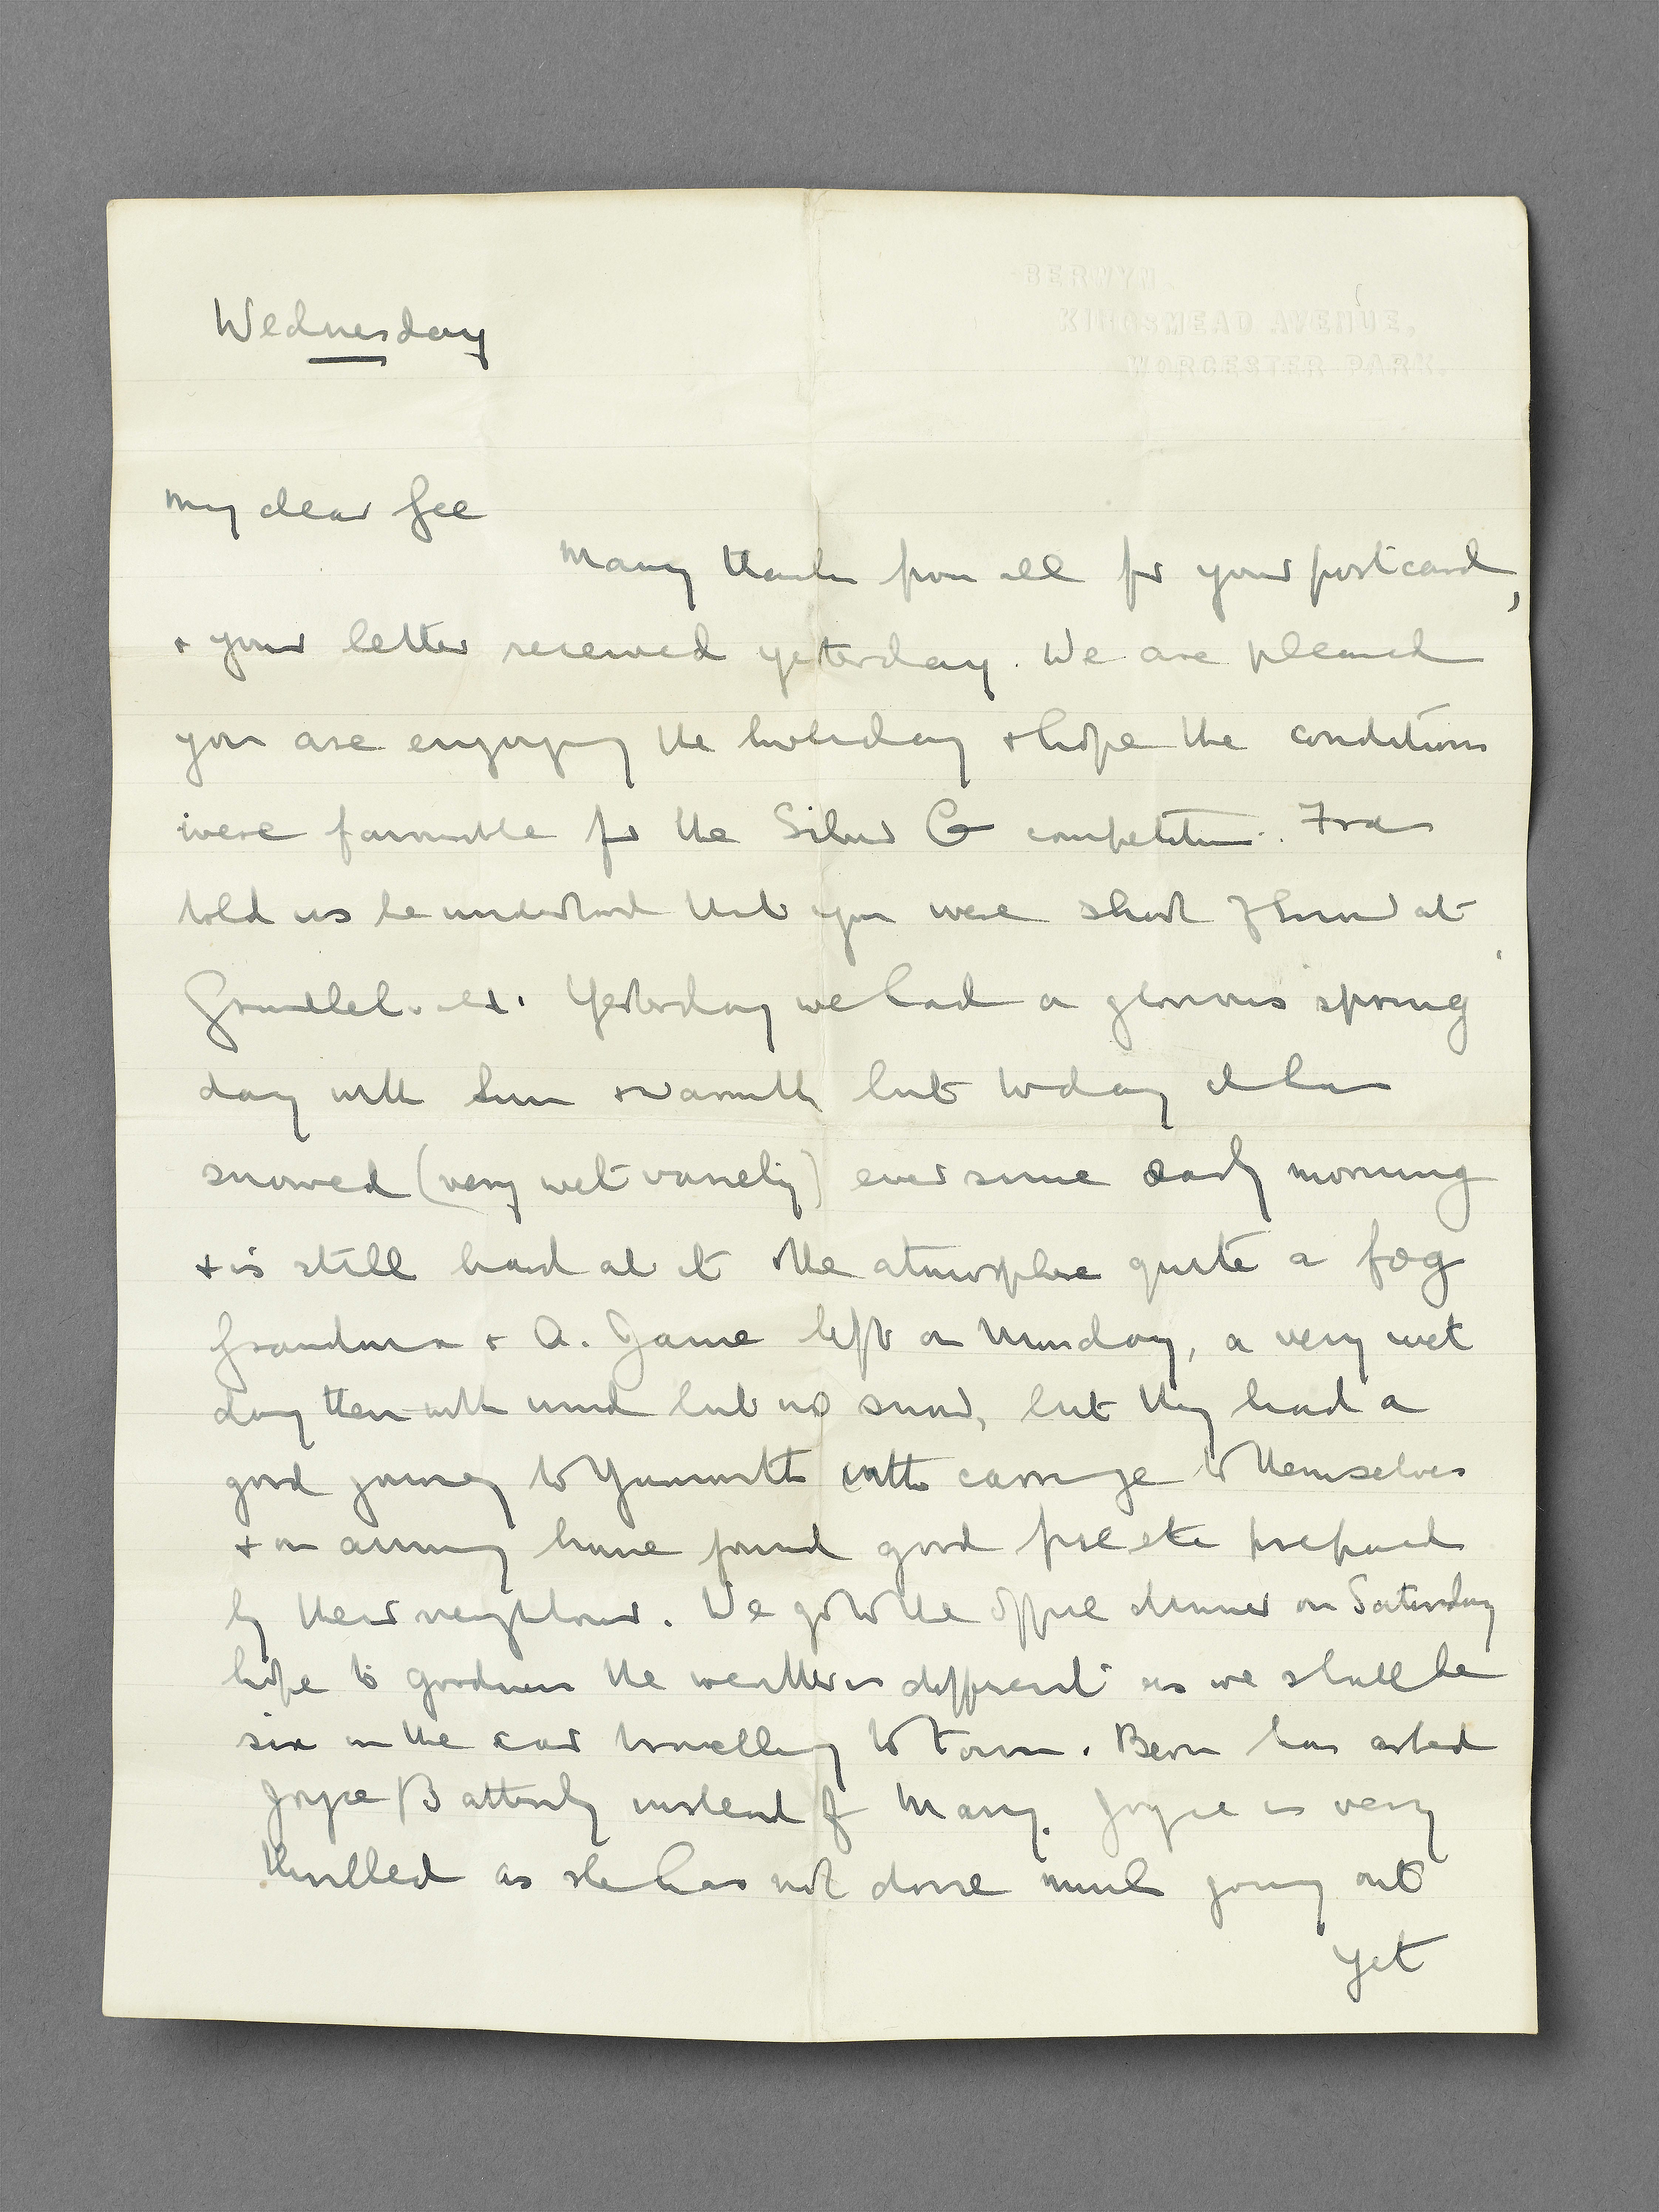 BERWYN.
KINGSMEAD AVENUE,
WORCESTER PARK.
Wednesday
My dear Gee
Many thanks from all for your postcard,
+ your letter received yesterday. We are pleased
you are enjoying the holiday + hope the conditions
were favourable for the Silver G competition.
told us he understood that you were short of snow at
Grindelwald. Yesterday we had a glorious spring
day with sun + warmth but today it has
snowed (very wet variety) ever since early morning
+ is still hard at it the atmosphere quite a fog
Grandma + A. Janie left on Monday, a very wet
day then with wind but no snow, but they had a
good journey to Yarmouth with carriage to themselves
+ on arriving home found good fire etc prepared
by their neighbour. We go to the office dinner on Saturday
hope to goodness the weather is different as we shall be
six in the car travelling to Town. Bern has asked
Joyce Battersby instead of Mary. Joyce is very
thrilled as she has not done much going out
yet